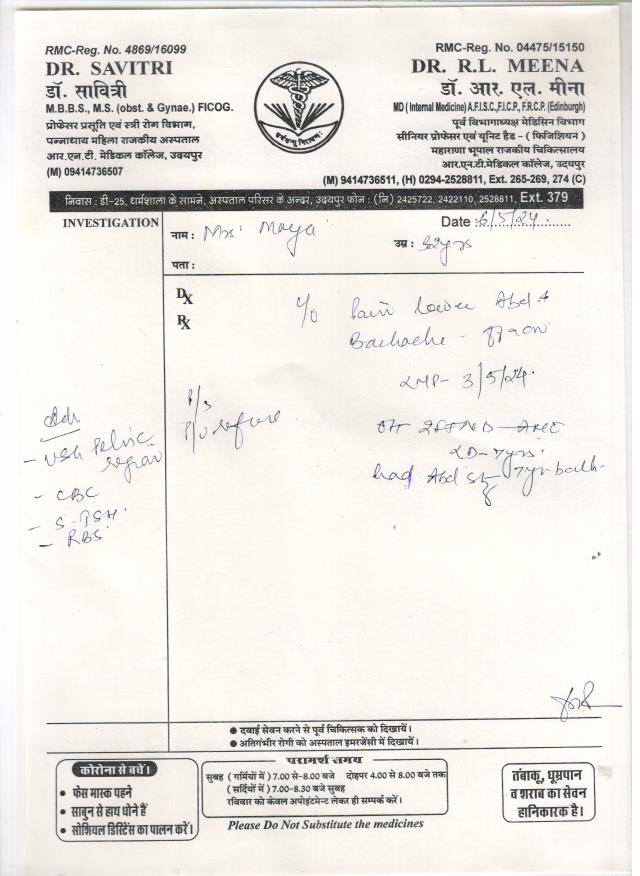 RMC-Reg. No. 4869/16099
DR. SAVITRI
डॉ. सावित्री
M.B.B.S., M.S. (obst. & Gynae.) FICOG.
प्रोफेसर प्रसूति एवं स्त्री रोग विभाग,
पन्नाधाय महिला राजकीय अस्पताल
आर.एन.टी. मेडिकल कॉलेज, उदयपुर
(M) 09414736507
RMC-Reg. No. 04475/15150
DR. R.L. MEENA
डॉ. आर. एल. मीना
MD ( Internal Medicine) A.F.I.S.C.,F.I.C.P., F.R.C.P. (Edinburgh)
पूर्व विभागाध्यक्ष मेडिसिन विभाग
सीनियर प्रोफेसर एवं यूनिट हैड - ( फिजिशियन )
महाराणा भूपाल राजकीय चिकित्सालय
आर.एन.टी.मेडिकल कॉलेज, उदयपुर
(M) 9414736511, (H) 0294-2528811, Ext. 265-269, 274 (C)
निवास : डी-25, धर्मशाला के सामने, अस्पताल परिसर के अन्दर, उदयपुर फोन : (नि) 2425722, 2422110, 2528811, Ext. 379
INVESTIGATION
नाम : Mrs. Maya
Date : 6/5/24
उम्र : 32yrs
पता :
Dx
Rx
c/o Pain Lower Abd +
Backache -
LMP - 3/5/24.
P/S
P/V refuse
LD - 7yrs.
had Abd 7yr back.
Adv
- USG Pelvic
- CBC
- S. TSH.
- RBS
• दवाई सेवन करने से पूर्व चिकित्सक को दिखायें।
• अतिगंभीर रोगी को अस्पताल इमरजेंसी में दिखायें।
कोरोना से बचें।
• फेस मास्क पहने
• साबुन से हाथ धोने हैं
• सोशियल डिस्टेंस का पालन करें।
परामर्श समय
सुबह ( गर्मियों में ) 7.00 से-8.00 बजे दोहपर 4.00 से 8.00 बजे तक
( सर्दियों में ) 7.00-8.30 बजे सुबह
रविवार को केवल अपोइंटमेंट लेकर ही सम्पर्क करें।
Please Do Not Substitute the medicines
तंबाकू, धूम्रपान
व शराब का सेवन
हानिकारक है।